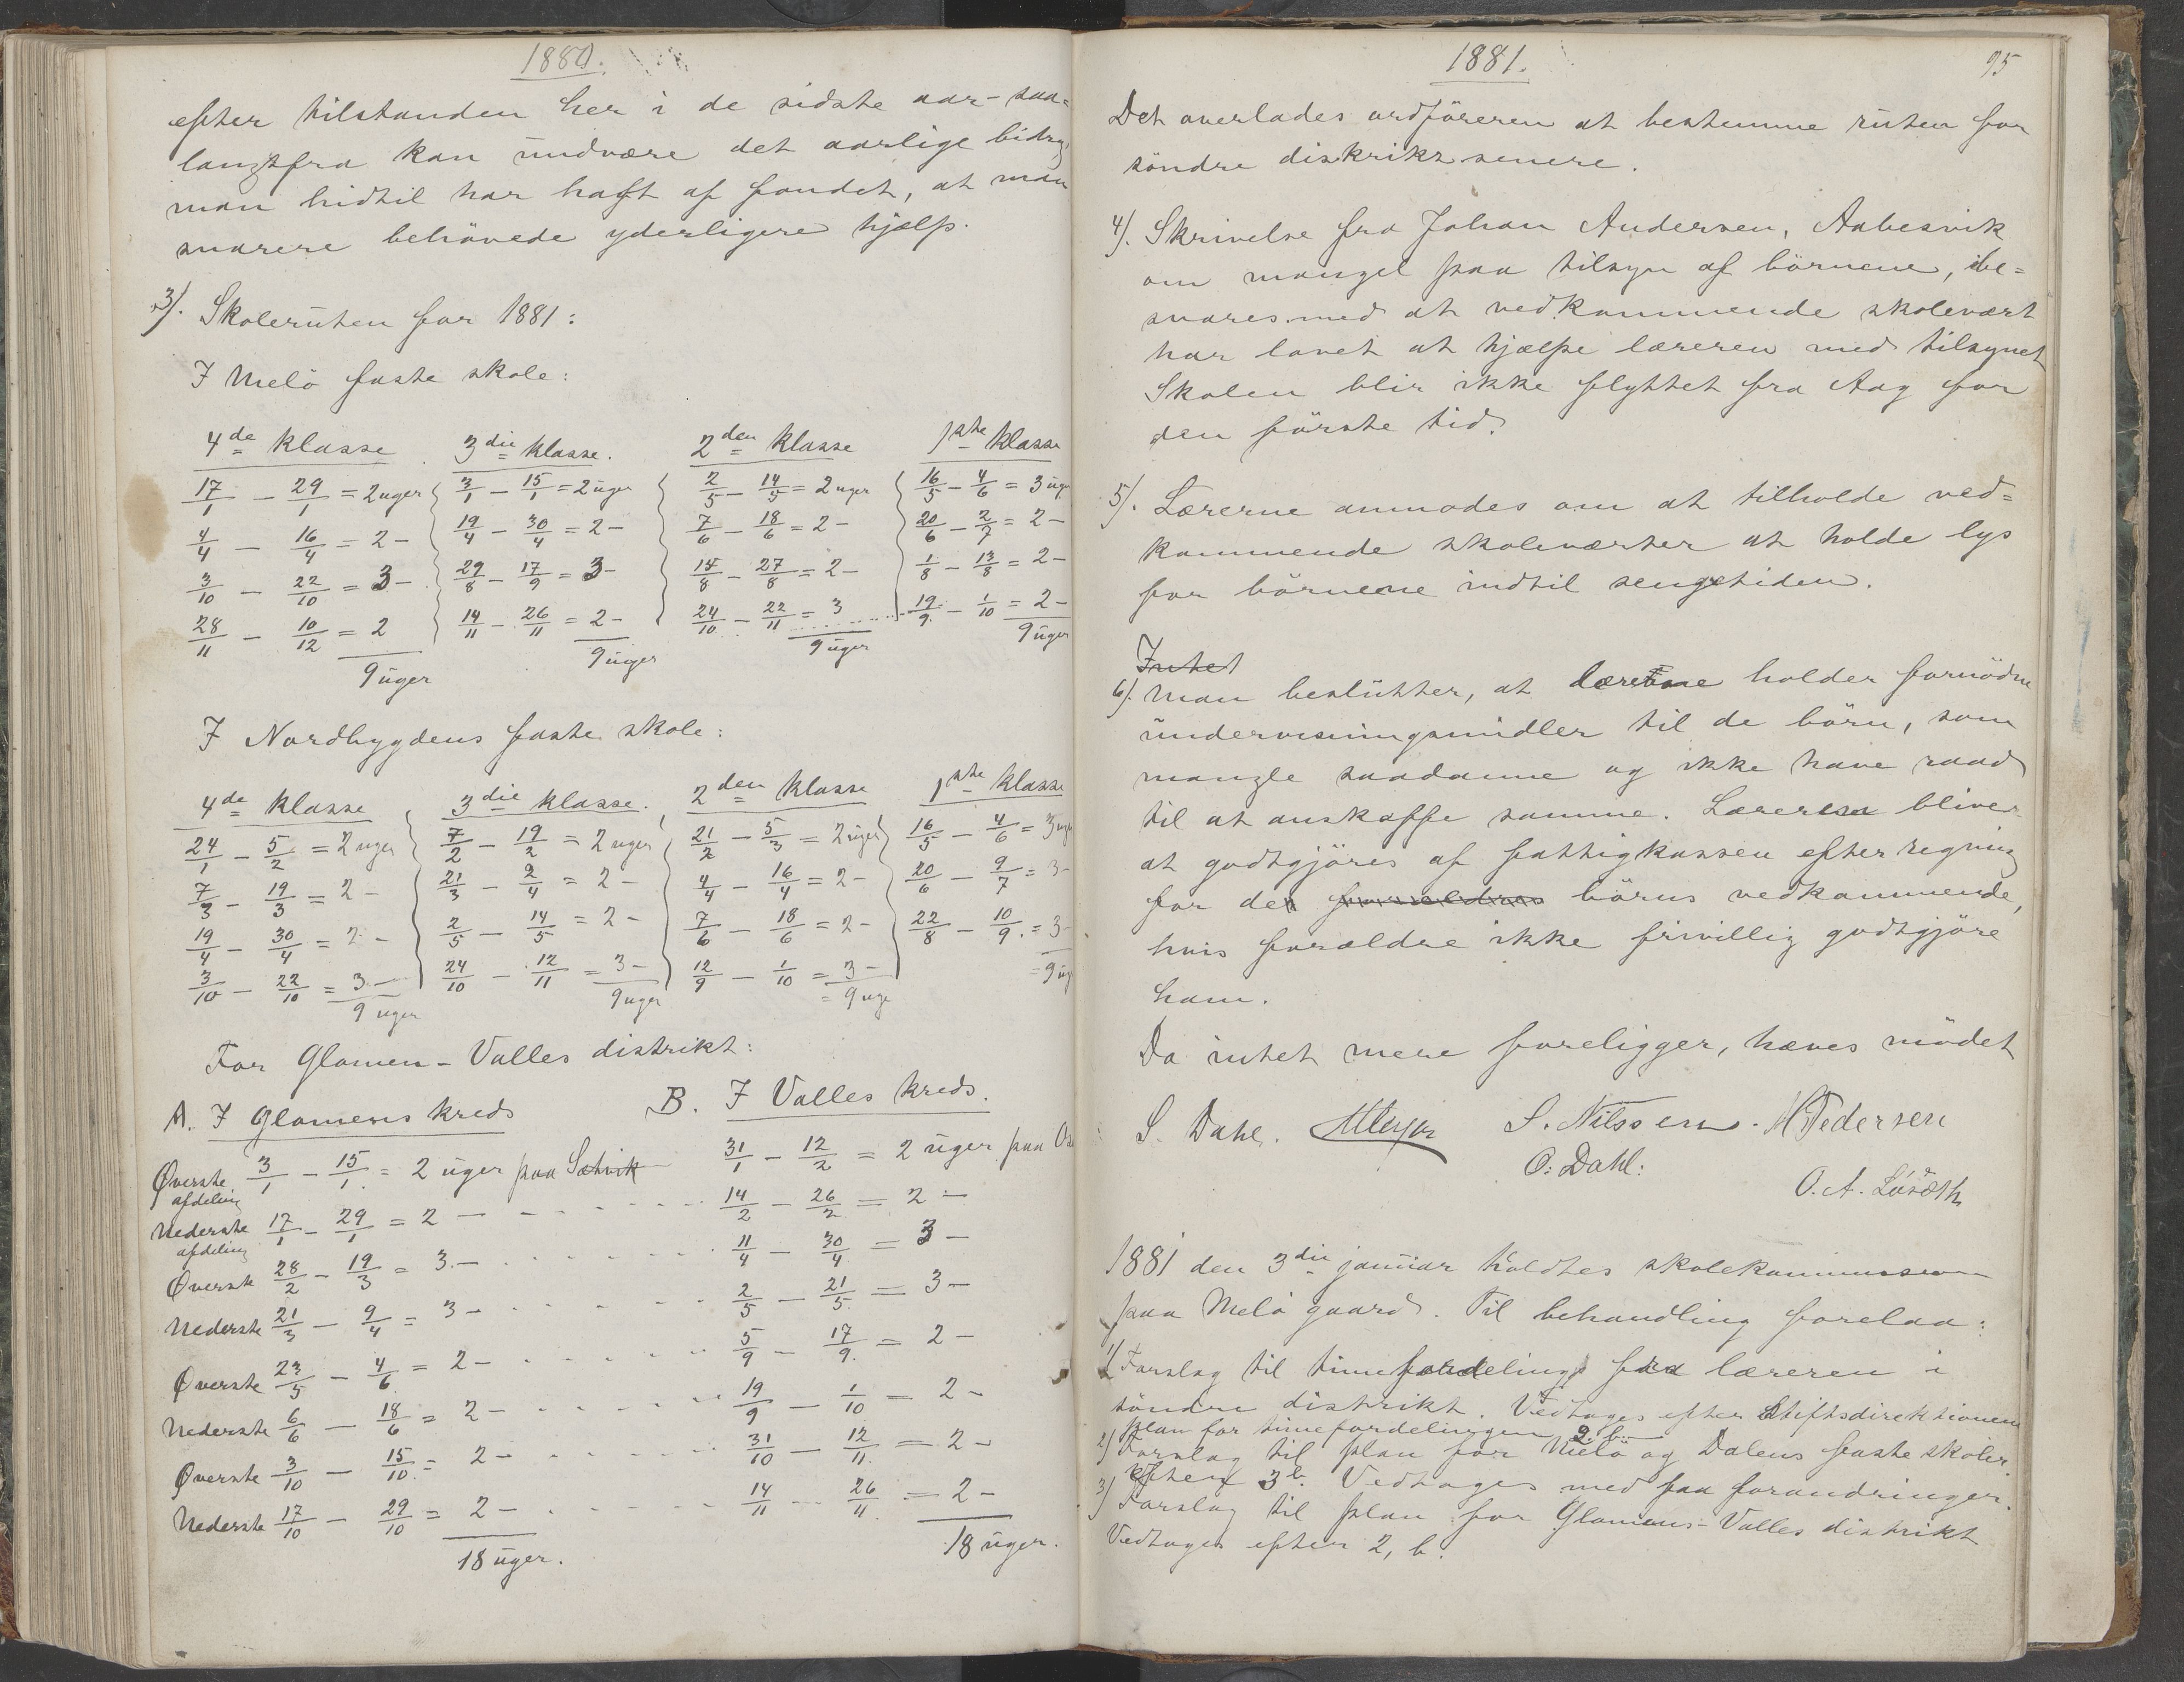 1880.
efter tilstanden her i de sidste aar - saa=
langtfra kan undvære det aarlige bidrag,
man hidtil har haft af fondet, at man
snarere behövede yderligere hjælp.
3). Skoleruten for 1881:
I Melö faste skole:
4de klasse 3die klasse. 2den klasse 1ste klasse
17/1 - 29/1 = 2 uger 3/1 - 15/1 = 2 uger 2/5 - 14/5 = 2 uger 16/5 - 4/6 = 3 uger
4/4 - 16/4 = 2 - 19/4 - 30/4 = 2 - 7/6 - 18/6 = 2 - 20/6 - 2/7 = 2 -
3/10 - 22/10 = 3 - 29/8 - 17/9 = 3 - 15/8 - 27/8 = 2 - 1/8 - 13/8 = 2 -
28/11 - 10/12 = 2 14/11 - 26/11 = 2 - 24/10 - 22/11 = 3 19/9 - 1/10 = 2 -
9 uger 9 uger 9 uger 9 uger
I Nordbygdens faste skole:
4de klasse 3die klasse. 2den klasse 1ste klasse
24/1 - 5/2 = 2 uger 7/2 - 19/2 = 2 uger 21/2 - 5/3 = 2 uger 16/5 - 4/6 = 3 uger
7/3 - 19/3 = 2 - 21/3 - 2/4 = 2 - 4/4 - 16/4 = 2 - 20/6 - 9/7 = 3 -
19/4 - 30/4 = 2 - 2/5 - 14/5 = 2 - 7/6 - 18/6 = 2 - 22/8 - 10/9 = 3 -
3/10 - 22/10 = 3 - 24/10 - 12/11 = 3 - 12/9 - 1/10 = 3 - = 9 uger
9 uger 9 uger = 9 uge
For Glomen - Valles distrikt:
A. I Glomens kreds B. I Valles kreds.
Øverste afdeling 3/1 - 15/1 = 2 uger paa Sætvik 31/1 - 12/2 = 2 uger paa
Nederste afdeling 17/1 - 29/1 = 2 - 14/2 - 26/2 = 2 -
Øverste 28/2 - 19/3 = 3 - 11/4 - 30/4 = 3 -
Nederste 21/3 - 9/4 = 3 - 2/5 - 21/5 = 3 -
Øverste 23/5 - 4/6 = 2 - 5/9 - 17/9 = 2 -
Nederste 6/6 - 18/6 = 2 - 19/9 - 1/10 = 2 -
Øverste 3/10 - 15/10 = 2 - 31/10 - 12/11 = 2 -
Nederste 17/10 - 29/10 = 2 - 14/11 - 26/11 = 2 -
18 uger. 18 uger.
1881. 95
Det overlades ordföreren at bestemme ruten for
söndre distrikt senere.
4). Skrivelse fra Johan Andersen, Aabesvik
om mangel paa tilsyn af börnene, be=
svares med at vedkommende skolevært
har lovet at hjælpe læreren med tilsynet
Skolen blir ikke flyttet fra Aag for
den förste tid.
5). Lærerne anmodes om at tilholde ved=
kommende skoleværter at holde lys
for börnene indtil sengetiden.
Intet
6). Man beslutter, at lærerne holder fornödne
undervisningsmidler til de börn, som
mangle saadanne og ikke have raad
til at anskaffe samme. Læreren bliver
at godtgjöres af fattigkassen efter regning
for de forældres börns vedkommende,
hvis forældre ikke frivillig godtgjöre
ham.
Da intet mere foreligger, hæves mödet
S. Dahl. S. Nilssen. M Pedersen
O. Dahl.
1881 den 3die januar holdtes skolekommission
paa Melö gaard. Til behandling forelaa:
1) Forslag til timefordeling fra læreren i
söndre distrikt. Vedtages efter Stiftsdirektionens
plan for timefordelingen 2. b.
2) Forslag til plan for Melö og Dalens faste skoler.
efter 3 b. Vedtages med faa forandringer.
3) Forslag til plan for Glomens-Valles distrikt
Vedtages efter 2, b.